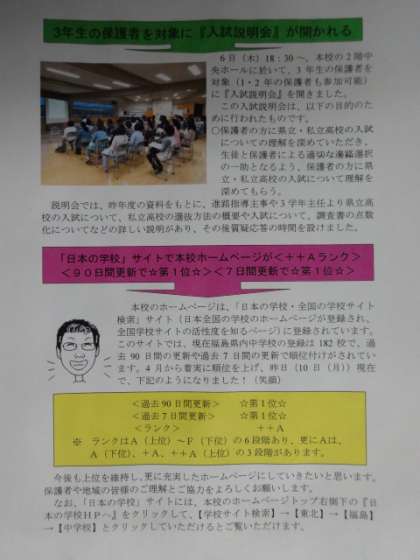 3年生の保護者を対象に『入試説明会』が開かれる
6日(木)18:30~、本校の2階中
央ホールに於いて、3年生の保護者を
対象(1・2年の保護者も参加可能)
に『入試説明会』を開きました。
この入試説明会は、以下の目的のた
めに行われたものです。
○保護者の方に県立・私立高校の入試
についての理解を深めていただき、
生徒と保護者による適切な進路選択
の一助となるよう、保護者の方に県
立・私立高校の入試について理解を
深めてもらう。
説明会では、昨年度の資料をもとに、進路指導主事や3学年主任より県立高
校の入試について、私立高校の選抜方法の概要や入試について、調査書の点数
化についてなどの詳しい説明があり、その後質疑応答の時間を設けました。
「日本の学校」サイトで本校ホームページが<++Aランク>
<90日間更新で☆第1位☆><7日間更新で☆第1位☆>
本校のホームページは、「日本の学校・全国の学校サイト
検索」サイト(日本全国の学校のホームページが登録され、
全国学校サイトの活性度を知るページ)に登録されています。
このサイトでは、現在福島県内中学校の登録は182校で、過
去90日間の更新や過去7日間の更新で順位付けがされてい
ます。4月から着実に順位を上げ、昨日(10日(月))現在
で、下記のようになりました!(笑顔)
<過去90日間更新> ☆第1位☆
<過去7日間更新> ☆第1位☆
<ランク> ++A
※ ランクはA(上位)~F(下位)の6段階あり、更にAは、
A(下位)、+A、++A(上位)の3段階があります。
今後も上位を維持し、更に充実したホームページにしていきたいと思います。
保護者や地域の皆様のご理解とご協力をよろしくお願いします。
なお、「日本の学校」サイトには、本校のホームページトップ右側下の『日
本の学校HPへ』をクリックして、【学校サイト検索】→【東北】→【福島】
→【中学校】とクリックしていただけるとご覧いただけます。